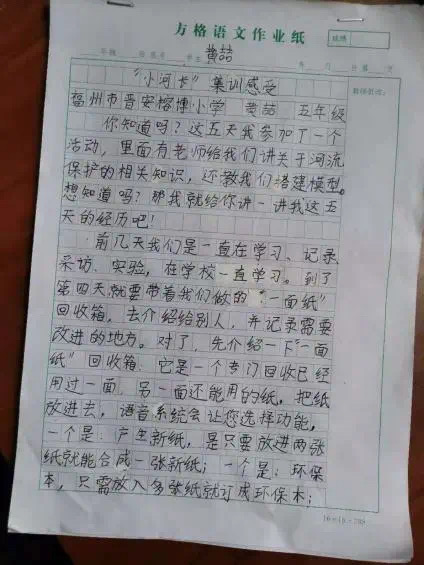 方格语文作业纸
成绩
黄喆
教师批改：
“小河卡”集训感受
福州市晋安榕博小学 黄喆 五年级
你知道吗？这五天我参加了一个
活动，里面有老师给我们讲关于河流
保护的相关知识，还教我们搭建模型。
想知道吗？那我就给你讲一讲我这五
天的经历吧！
前几天我们是一直在学习、记录
采坊、实验，在学校一直学习。到了
第四天就要带着我们做的“一面纸”
回收箱，去介绍给别人，并记录需要
改进的地方。对了，先介绍一下“一面
纸”回收箱：它是一个专门回收已经
用过一面，另一面还能用的纸，把纸
放进去，语音系统会让您选择功能，
一个是：产生新纸，是只要放进两张
纸就能合成一张新纸；一个是：环保
本，只需放入多张纸就订成环保本；